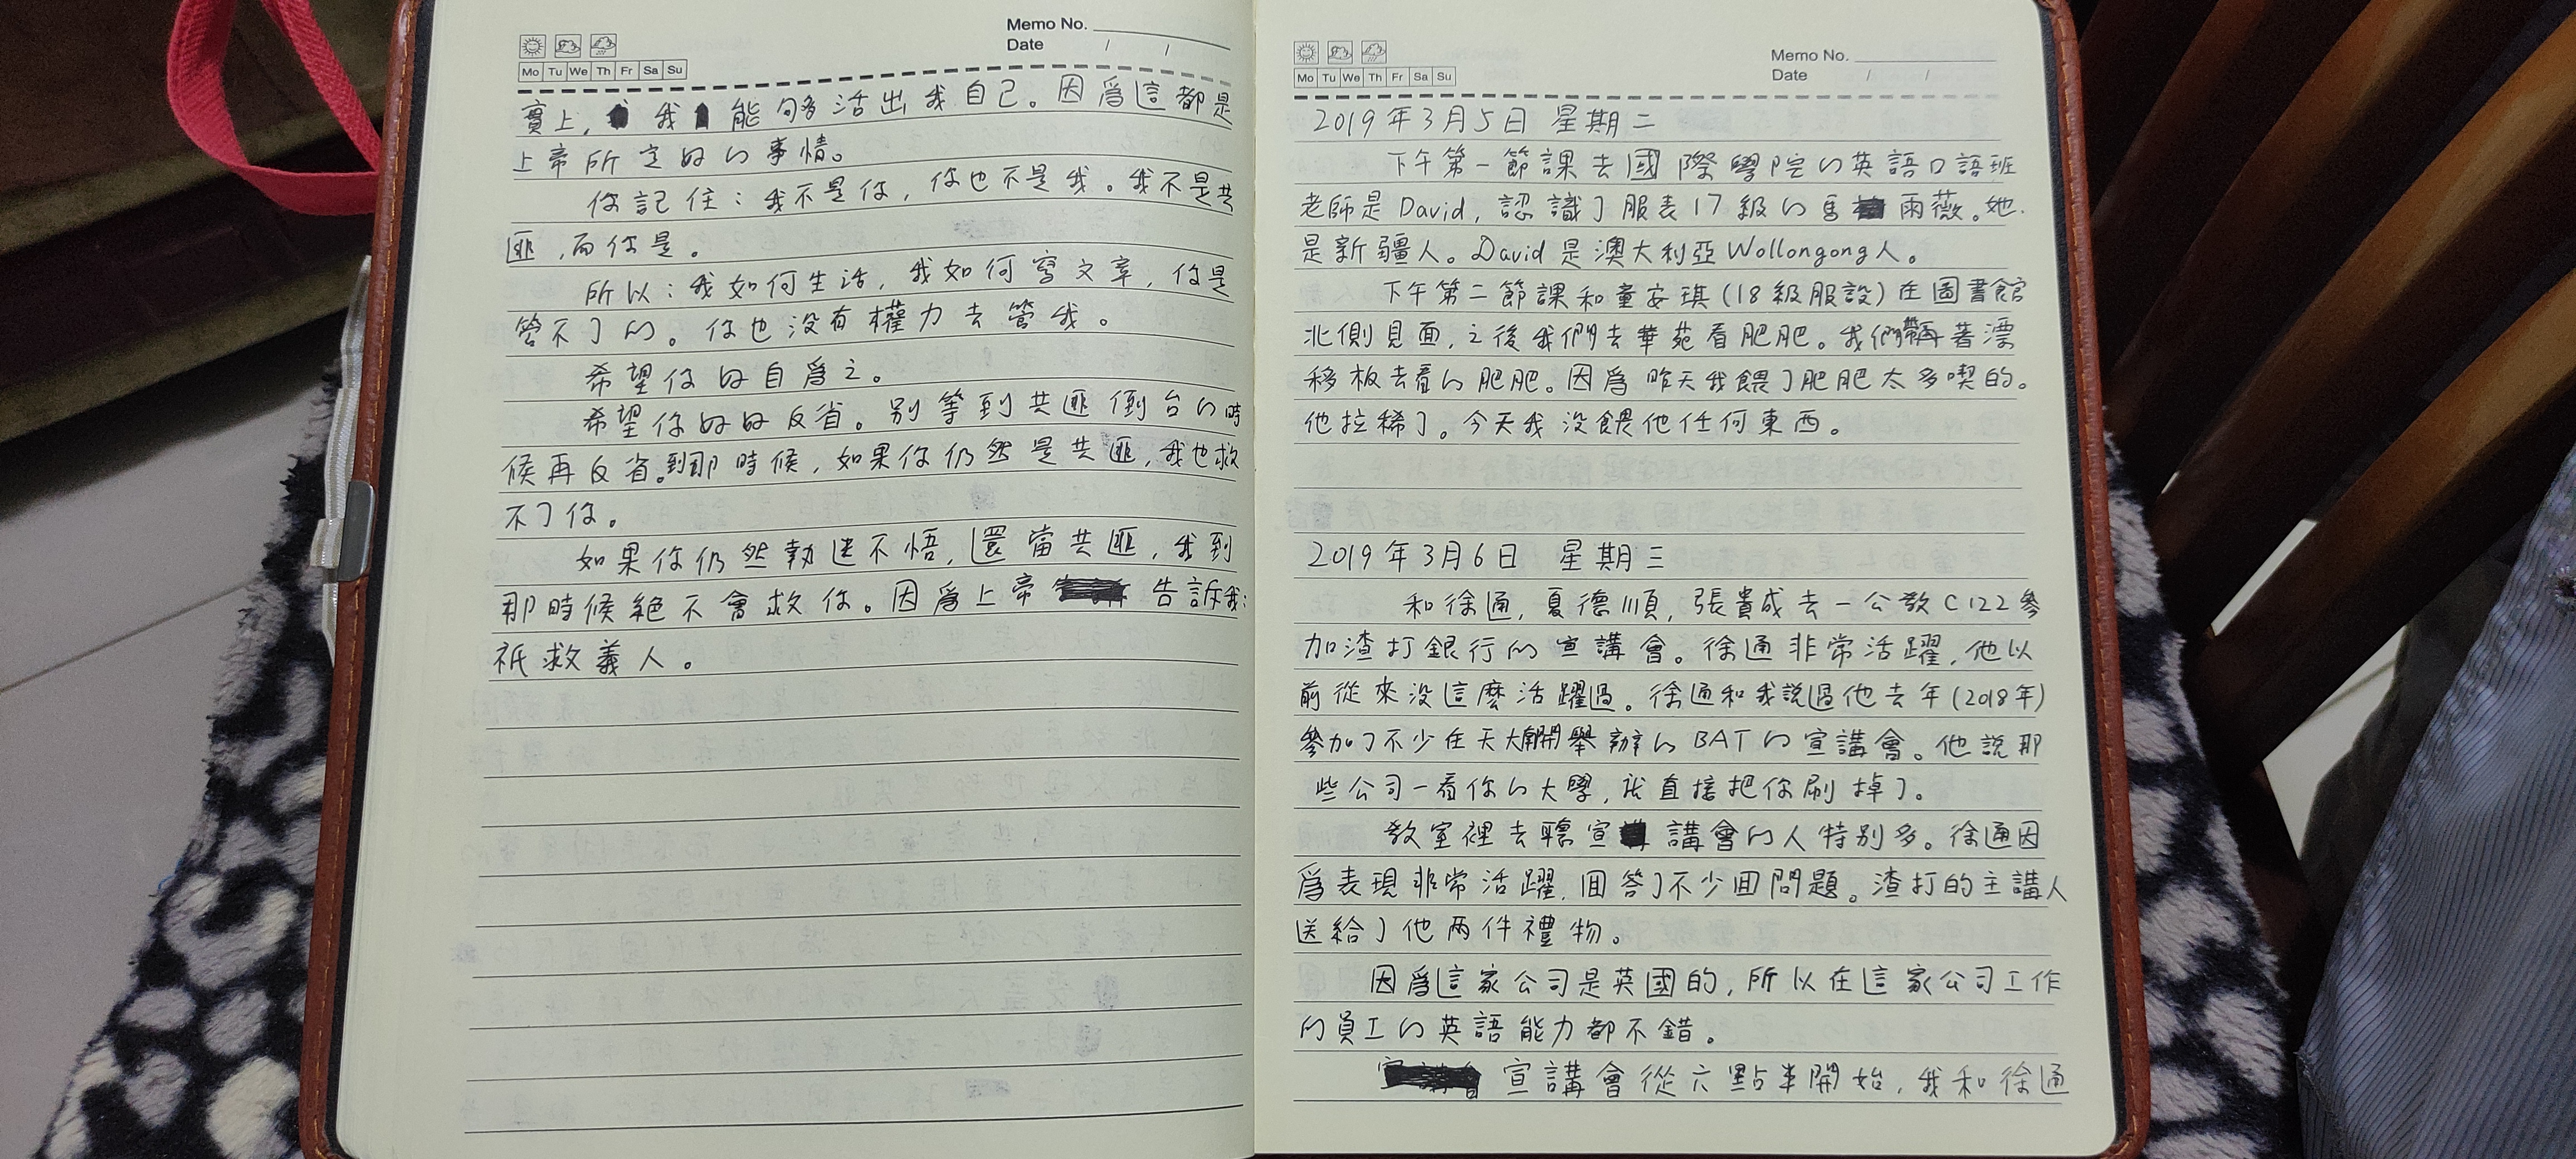 Memo No.
Date / /
Mo Tu We Th Fr Sa Su
實上, 我能够活出我自己。因爲這都是
上帝所定好的事情。
你記住:我不是你,你也不是我。我不是共
匪,而你是。
所以:我如何生活,我如何寫文章,你是
管不了的。你也没有權力去管我。
希望你好自爲之。
希望你好好反省。别等到共匪倒台的時
候再反省。到那時候,如果你仍然是共匪,我也救
不了你。
如果你仍然執迷不悟,還當共匪,我到
那時候絕不會救你。因爲上帝告訴我:
祇救義人。
Memo No.
Date / /
Mo Tu We Th Fr Sa Su
2019年3月5日 星期二
下午第一節課去國際學院的英語口語班
老師是David,認識了服表17級的馬雨薇。她
是新疆人。David是澳大利亞Wollongong人。
下午第二節課和童安琪(18級服設)在圖書館
北側見面,之後我們去華苑看肥肥。我們著漂
移板去看的肥肥。因爲昨天我餵了肥肥太多喫的。
他拉稀了。今天我没餵他任何東西。
2019年3月6日 星期三
和徐通,夏德順,張貴成去一公教C122參
加渣打銀行的宣講會。徐通非常活躍,他以
前從來没這麼活躍過。徐通和我説過他去年(2018年)
參加了不少在天大南開舉辦的BAT的宣講會。他説那
些公司一看你的大學,就直接把你刷掉了。
教室裡去聽宣講會的人特别多。徐通因
爲表現非常活躍,回答了不少回問題。渣打的主講人
送給了他两件禮物。
因爲這家公司是英國的,所以在這家公司工作
的員工的英語能力都不錯。
宣講會從六點半開始,我和徐通